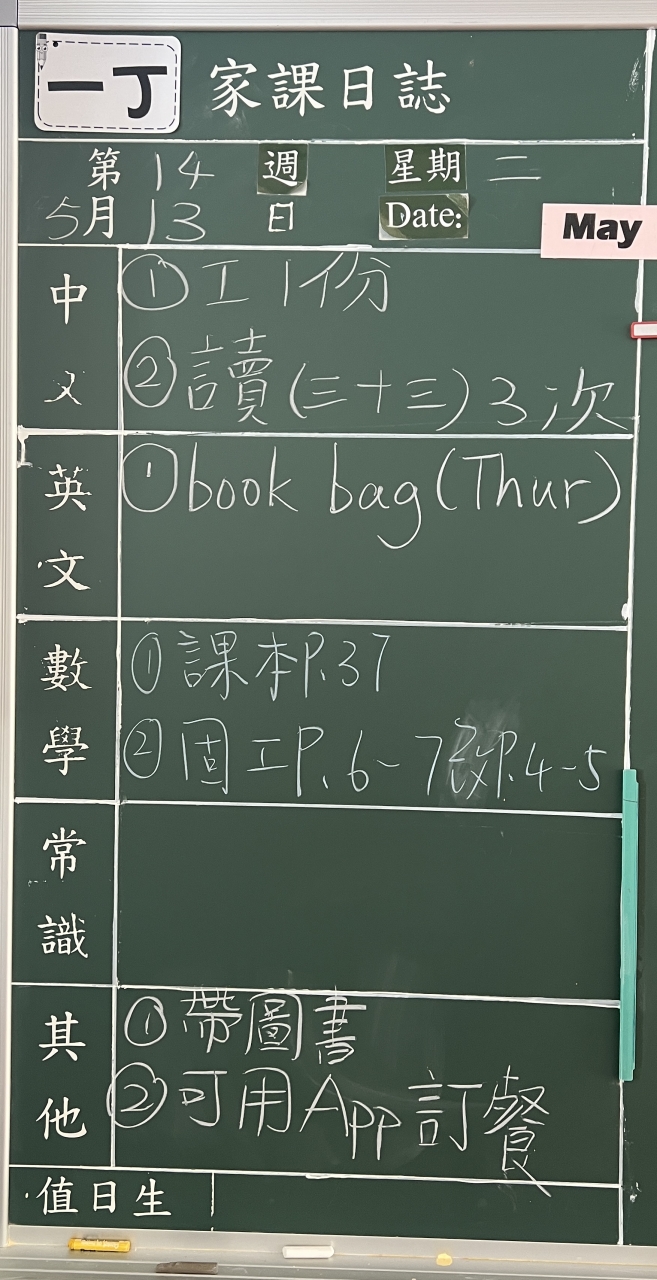 一丁 家課日誌
第 14 週 星期 二
5月 13 日 Date: May
中文
①工1份
②讀(三十三)3次
英文
①book bag(Thur)
數學
①課本P.37
②固工P.6-7改P.4-5
常識
其他
①帶圖書
②可用App訂餐
值日生